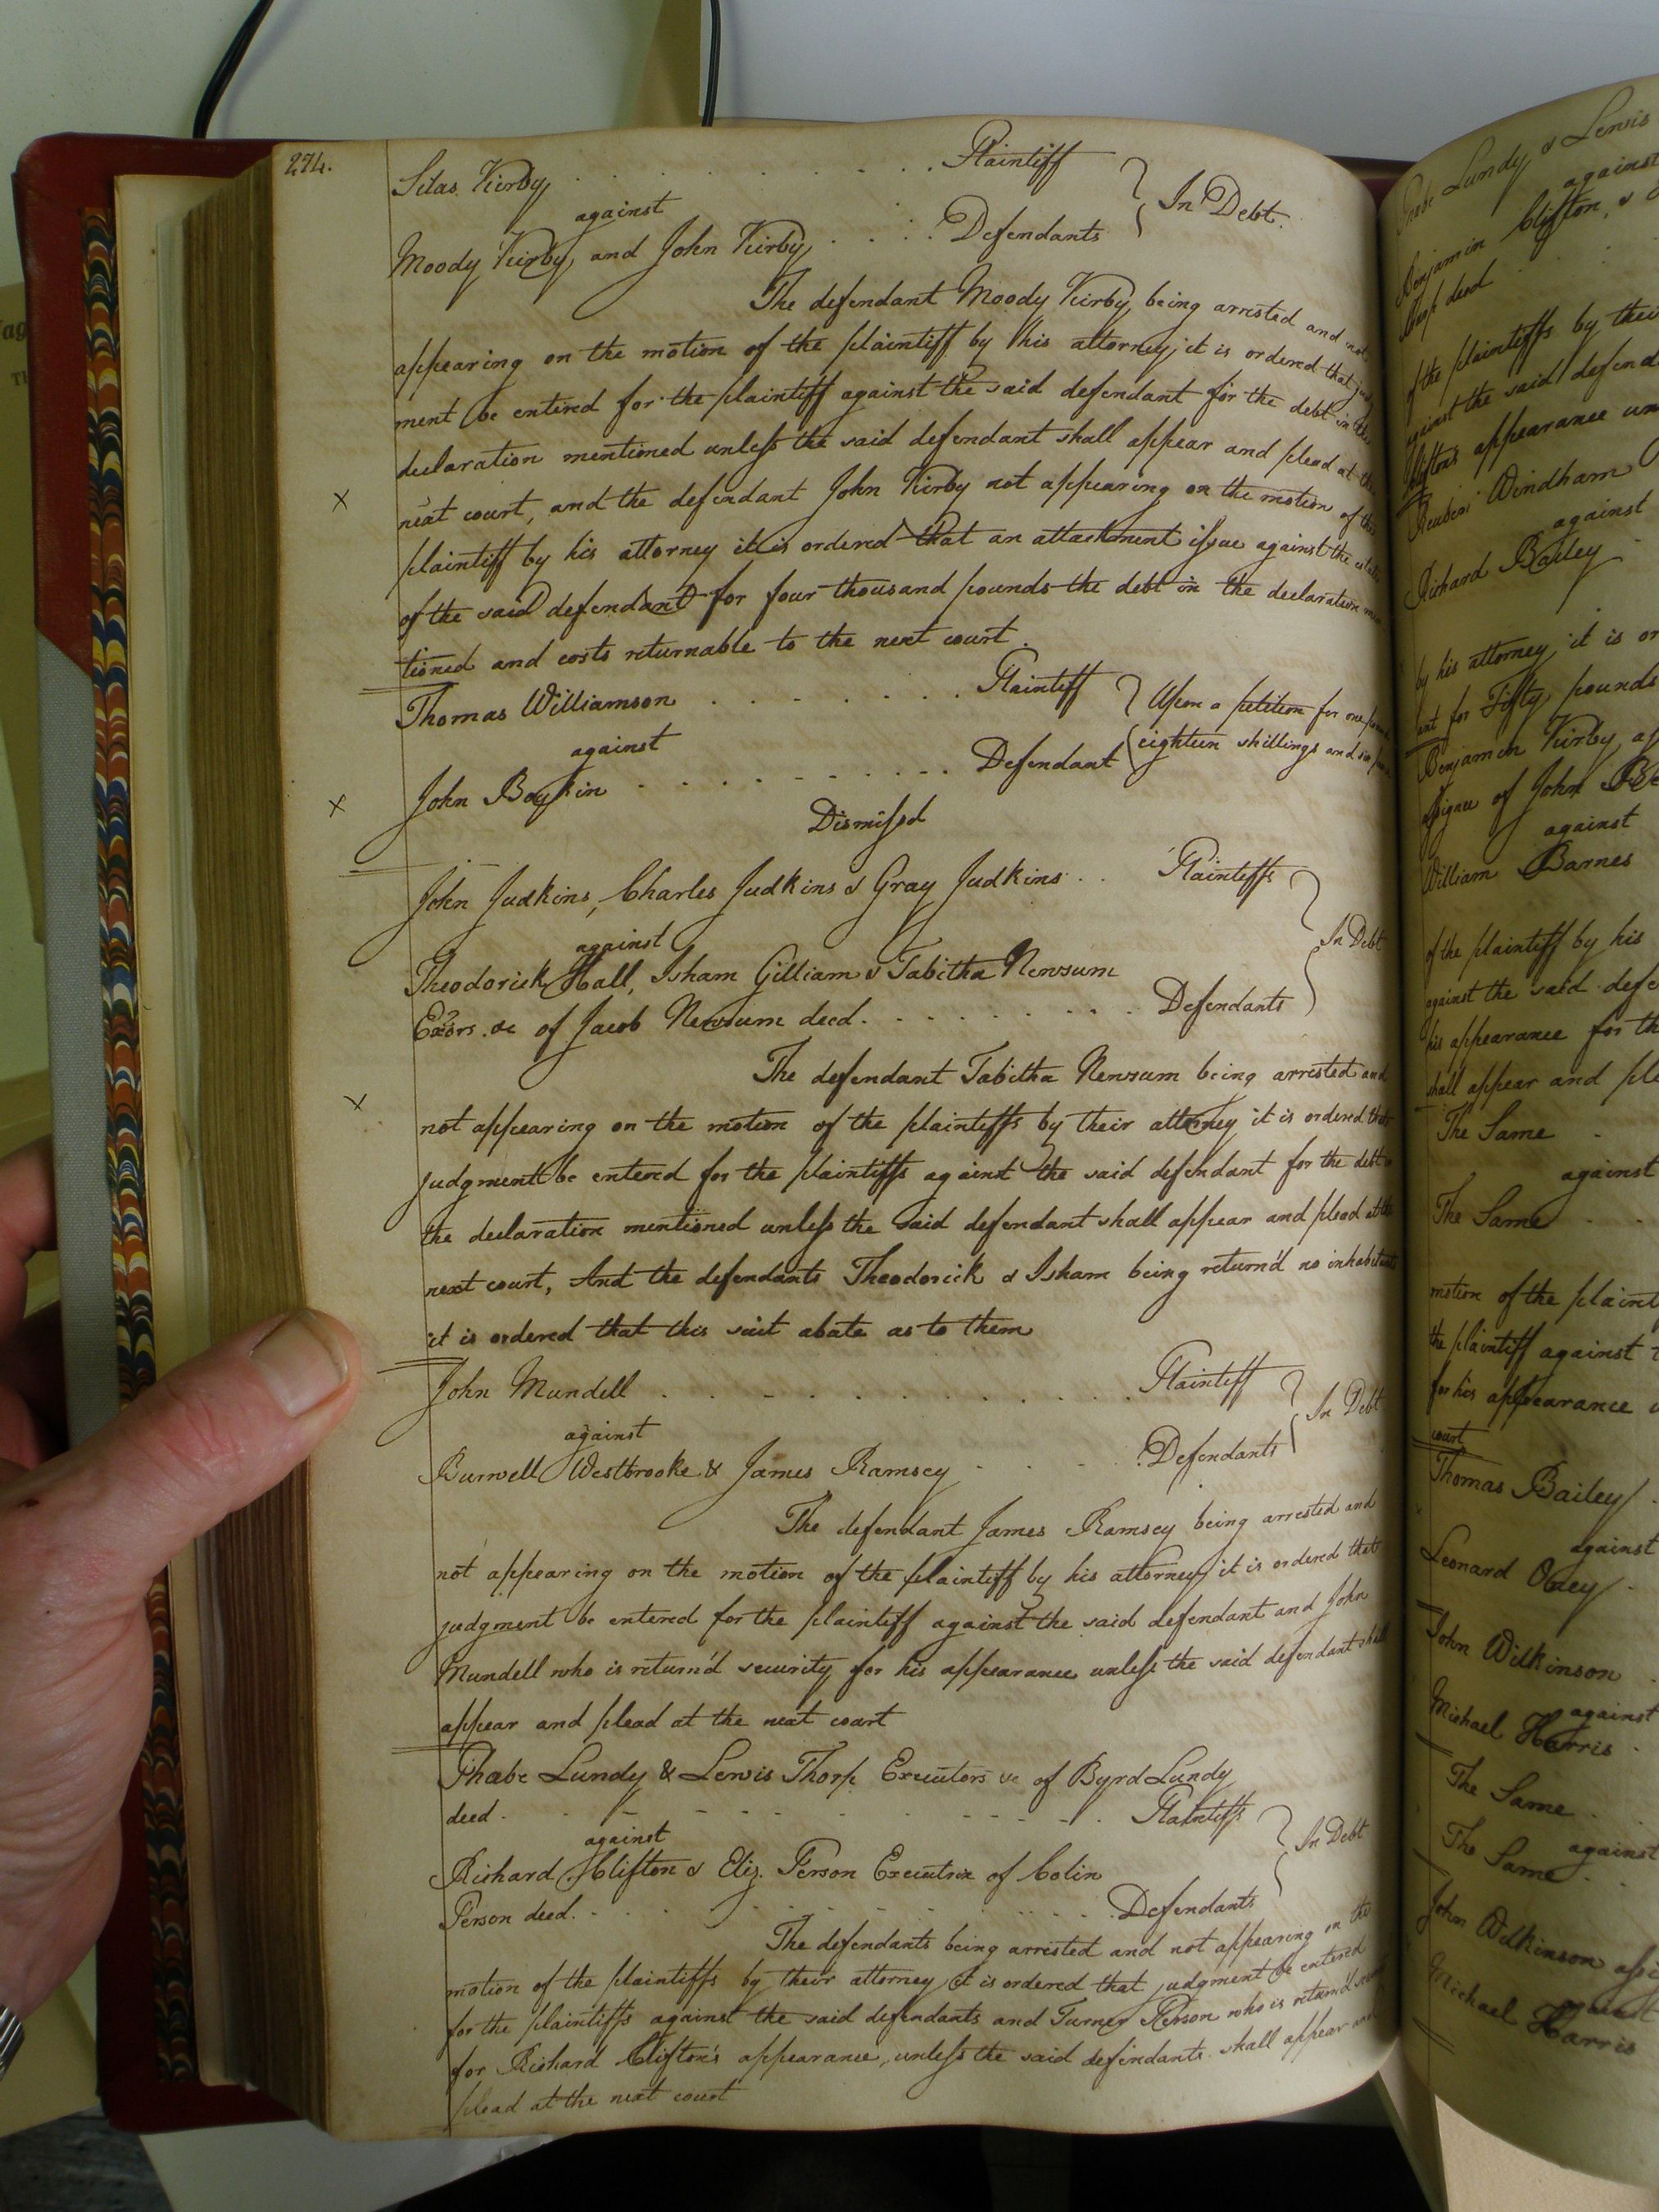 274.
Silas Kirby . . . . . . . . . Plaintiff
against
In Debt.
Moody Kirby, and John Kirby . . . . Defendants
The defendant Moody Kirby being arrested and not
appearing on the motion of the plaintiff by his attorney, it is ordered that judg
ment be entered for the plaintiff against the said defendant for the debt in the
declaration mentioned unless the said defendant shall appear and plead at the
x
next court, and the defendant John Kirby not appearing on the motion of the
plaintiff by his attorney it is ordered that an attachment issue against the estate
of the said defendant for four thousand pounds the debt in the declaration men
tioned and costs returnable to the next court.
Thomas Williamson . . . . . . . Plaintiff
Upon a petition for one
against
eighteen shillings and
John Boykin . . . . . . . . . . Defendant
x
Dismissed
John Judkins, Charles Judkins & Gray Judkins . . Plaintiffs
against
In Debt
Theodorick Hall, Isham Gilliam & Tabitha Newsum
Exors. &c of Jacob Newsum deced. . . . . . . . . . Defendants
The defendant Tabitha Newsum being arrested and
x
not appearing on the motion of the plaintiffs by their attorney it is ordered that
judgment be entered for the plaintiffs against the said defendant for the debt in
the declaration mentioned unless the said defendant shall appear and plead at the
next court, And the defendants Theodorick & Isham being return'd no inhabitants
it is ordered that this suit abate as to them
John Mundell . . . . . . . . . . . Plaintiff
against
In Debt
Burwell Westbrooke & James Ramsey . . . . Defendants
The defendant James Ramsey being arrested and
not appearing on the motion of the plaintiff by his attorney it is ordered that
judgment be entered for the plaintiff against the said defendant and John
Mundell who is return'd security for his appearance unless the said defendant shall
appear and plead at the next court
Phæbe Lundy & Lewis Thorp Executors &c of Byrd Lundy
deed. . . . . . . . . . . . Plaintiffs
against
In Debt
Richard Clifton & Eliz. Person Executrix of Colin
Person deed. . . . . . . . . . . . Defendants
The defendants being arrested and not appearing on the
motion of the plaintiffs by their attorney it is ordered that judgment be entered
for the plaintiffs against the said defendants and Turner Person who is return'd
for Richard Clifton's appearance, unless the said defendants shall appear and
plead at the next court
Lundy & Lewis
against
Benjamin Clifton, &
deed
of the plaintiffs by their
against the said defend
Clifton's appearance un
Reuben Windham
against
Richard Bailey
by his attorney it is or
ant for Fifty pounds
Benjamin Kirby
of John
against
William Barnes
of the plaintiff by his
against the said defe
his appearance for th
shall appear and ple
The Same
against
The Same
motion of the plaint
the plaintiff against t
for his appearance u
court
Thomas Bailey
against
Leonard Oney
John Wilkinson
against
Michael Harris
The Same
against
The Same
John Wilkinson assi
against
Michael Harris